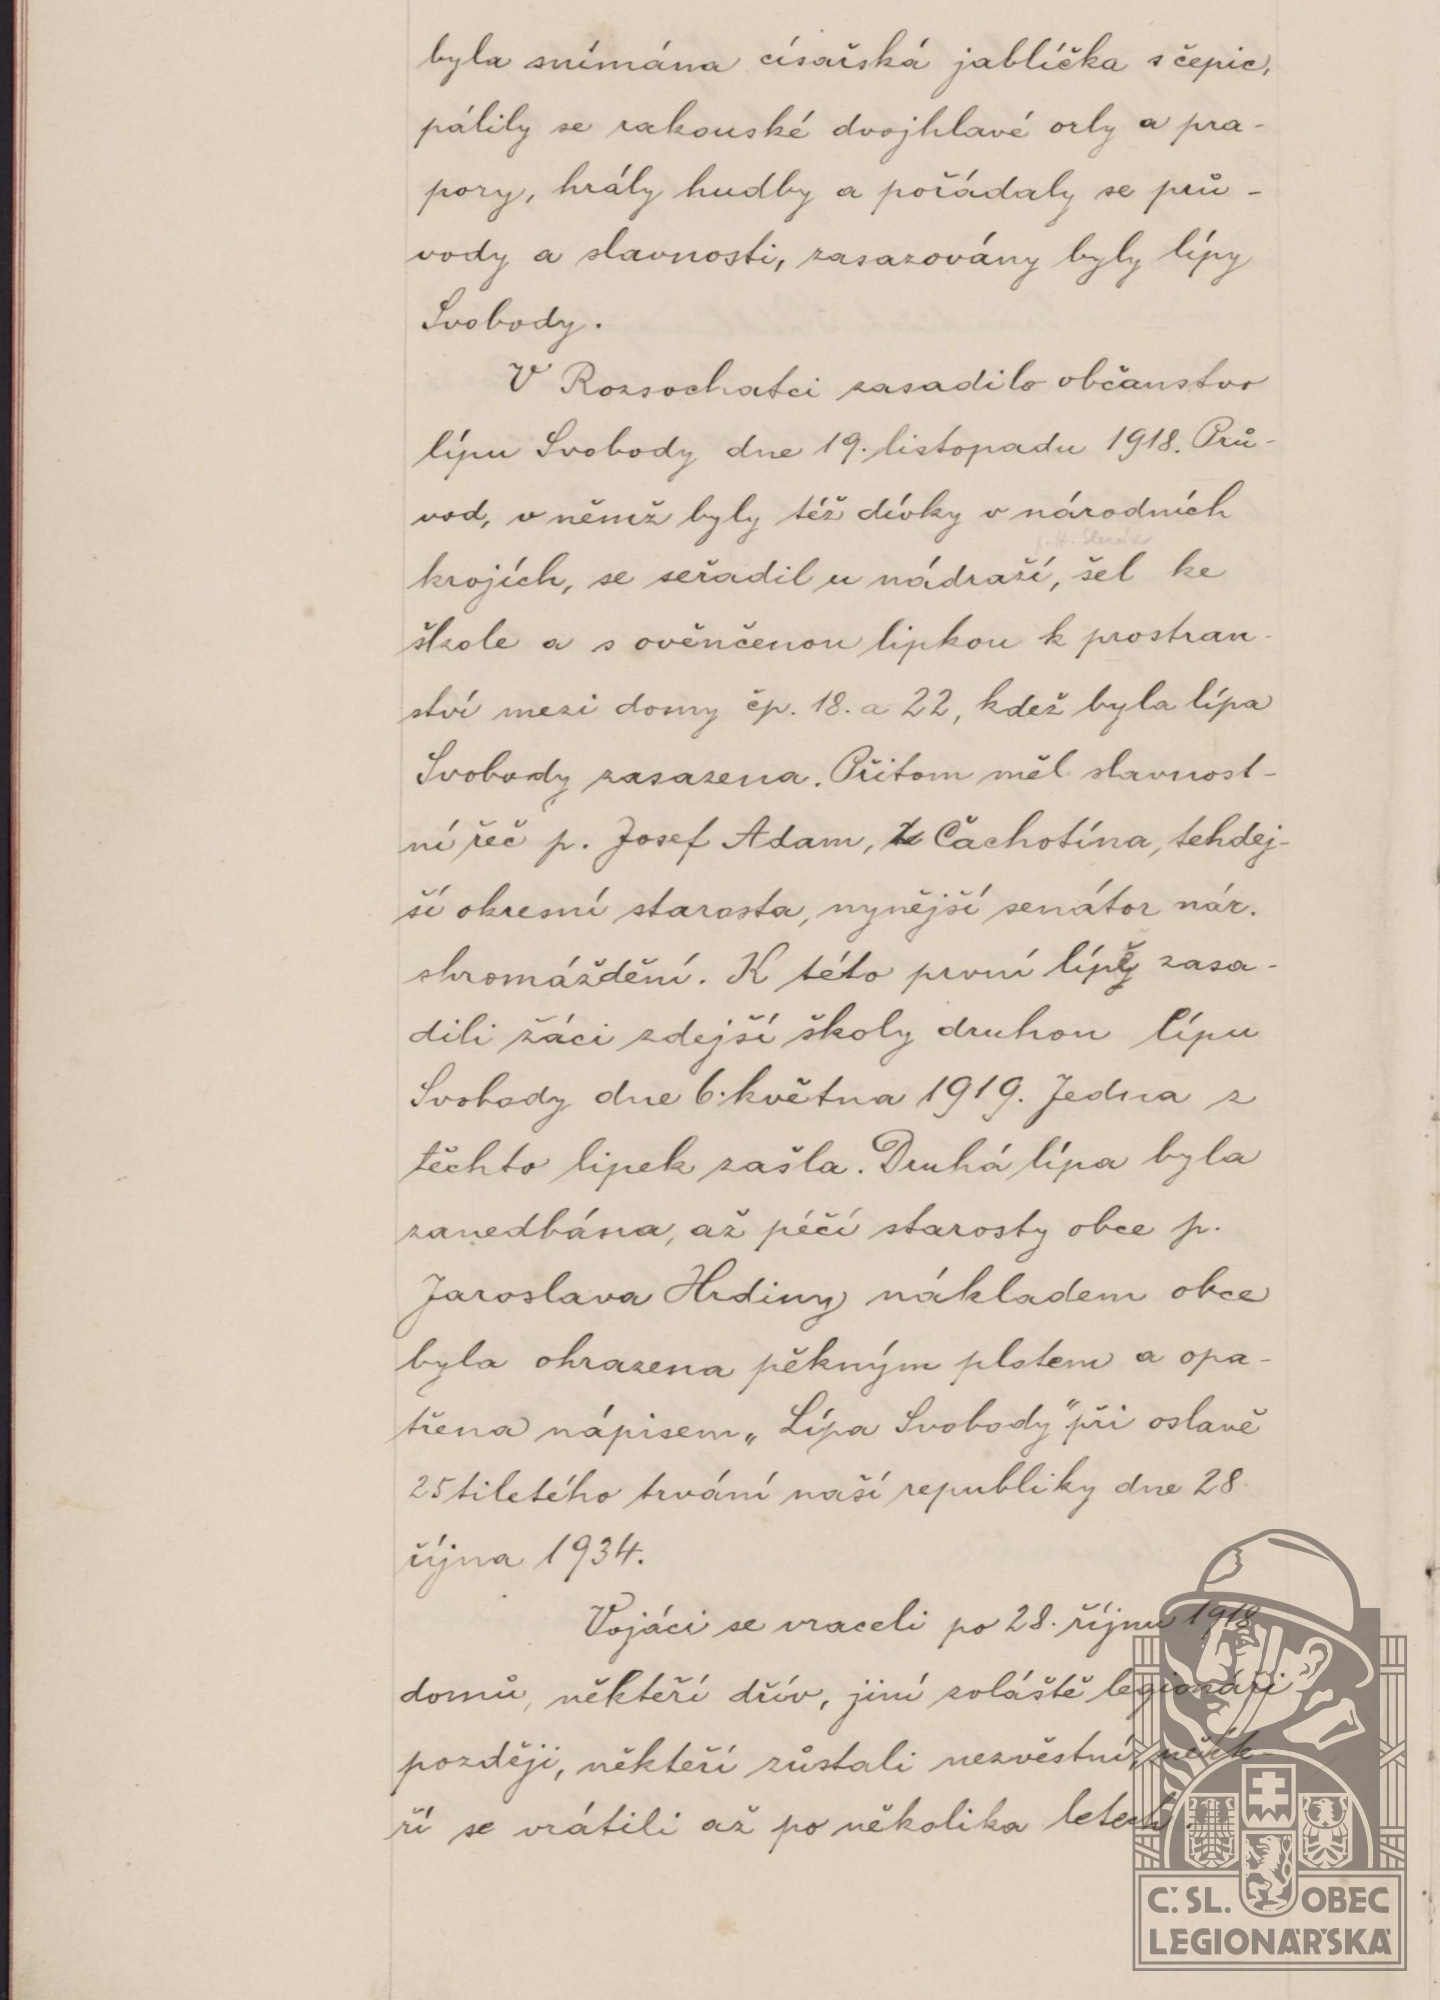 byla snímána císařská jablíčka s čepic,
pálily se rakouské dvojhlavé orly a pra-
pory, hrály hudby a pořádaly se prů-
vody a slavnosti, zasazovány byly lípy
Svobody.
V Rozsochatci zasadilo občanstvo
lípu Svobody dne 19. listopadu 1918. Prů-
vod, v němž byly též dívky v národních
krojích, se seřadil u nádraží, šel ke
škole a s ověnčenou lipkou k prostran-
ství mezi domy čp. 18. a 22, kdež byla lípa
Svobody zasazena. Přitom měl slavnost-
ní řeč p. Josef Adam, z Čachotína, tehdej-
ší okresní starosta, nynější senátor nár.
shromáždění. K této první lípě zasa-
dili žáci zdejší školy druhou lípu
Svobody dne 6. května 1919. Jedna z
těchto lipek zašla. Druhá lípa byla
zanedbána, až péčí starosty obce p.
Jaroslava Hrdiny nákladem obce
byla ohrazena pěkným plotem a opa-
třena nápisem „Lípa Svobody" při oslavě
25tiletého trvání naší republiky dne 28.
října 1934.
Vojáci se vraceli po 28. říjnu 1918
domů, někteří dřív, jiní zoláště legionáři
později, někteří zůstali nezvěstní, někte-
ří se vrátili až po několika letech.
Č. SL. OBEC
LEGIONÁŘSKÁ